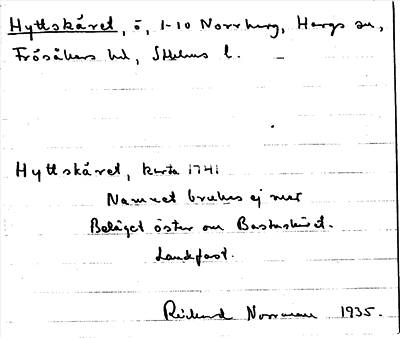 Hyttskäret, ö, 1-10 Norrberg, Hargs sn,
Frösåkers hd, Sthlms l.
Hyttskäret, karta 1741
Namnet brukas ej mer
Beläget öster om Bastuskäret.
Landfast.
Rickard Norrman 1935.